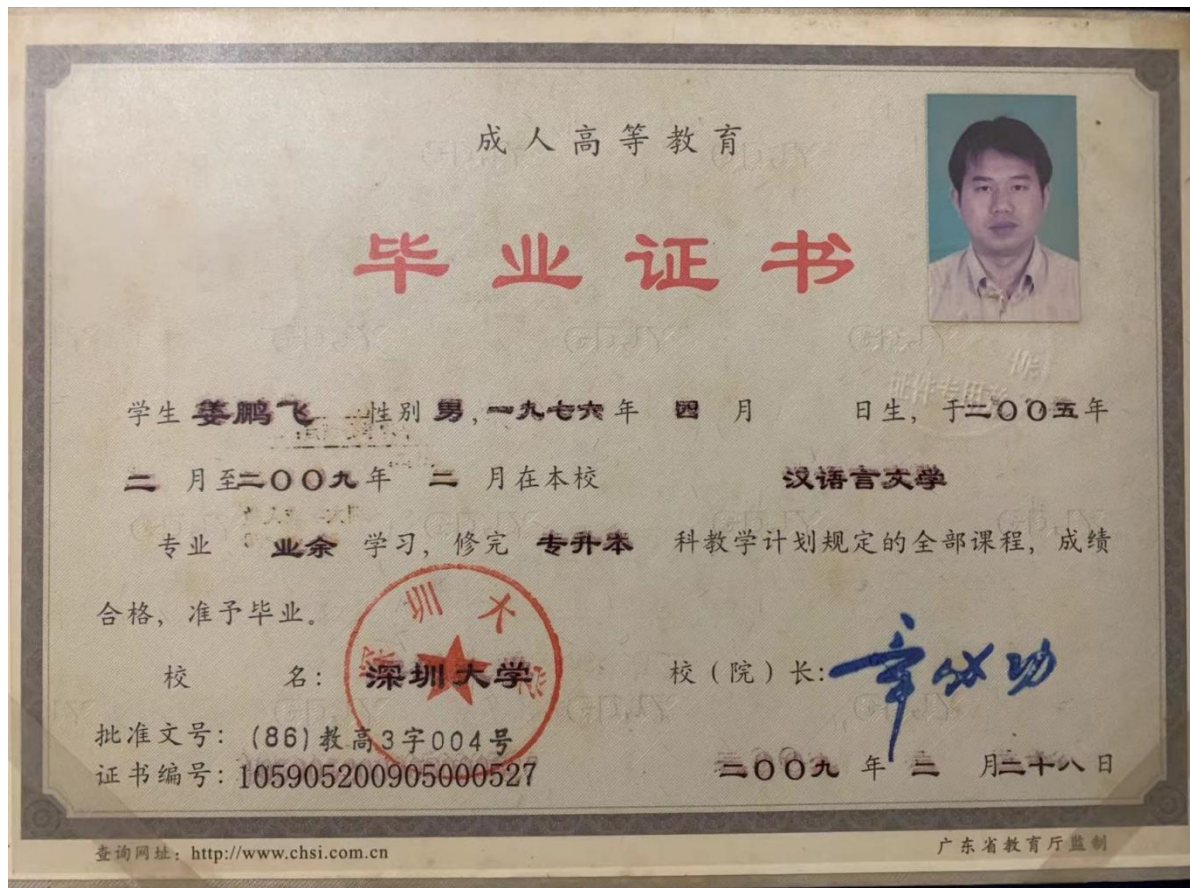 成人高等教育
毕业证书
学生 姜鹏飞 性别 男,一九七六年 四 月 日生,于二〇〇五年
二 月至二〇〇九年 二 月在本校 汉语言文学
专业 业余 学习,修完 专升本 科教学计划规定的全部课程,成绩
合格,准予毕业。
深圳大学
校 名: 深圳大学 校(院)长:章必功
批准文号:(86)教高3字004号
证书编号:105905200905000527 二〇〇九 年 二 月二十八日
查询网址:http://www.chsi.com.cn 广东省教育厅监制
证件专用章